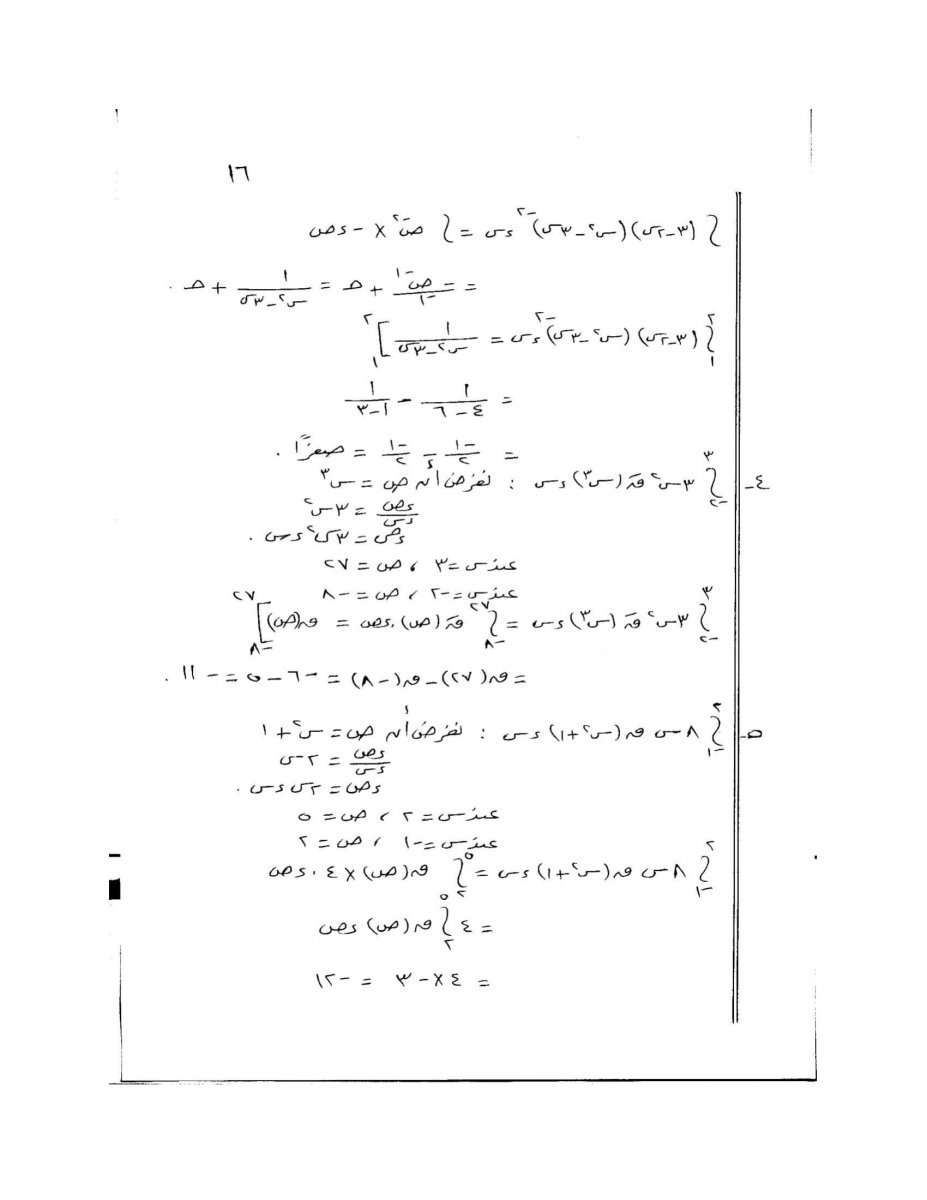 ١٦
∫ (٣-٢س)(س٢-٣س)-٢ ءس = ∫ ص-٢ × -ءص
= -ص-١/-١ + هـ = ١/(س٢-٣س) + هـ .
∫١٢ (٣-٢س)(س٢-٣س)-٢ ءس = [١/(س٢-٣س)]١٢
= ١/(٤-٦) - ١/(١-٣)
= -١/٢ - -١/٢ = صفرًا .
٤- ∫-٢٣ ٣س٢ قَ(س٣) ءس : نفرض أن ص = س٣
ءص/ءس = ٣س٢
ءص = ٣س٢ ءس .
عند س = ٣ ، ص = ٢٧
عند س = -٢ ، ص = -٨
∫-٢٣ ٣س٢ قَ(س٣) ءس = ∫-٨٢٧ قَ(ص) . ءص = [ق(ص)]-٨٢٧
= ق(٢٧) - ق(-٨) = -٦ - ٥ = -١١ .
٥- ∫-١٢ ٨س ق(س٢+١) ءس : نفرض أن ص = س٢ + ١
ءص/ءس = ٢س
ءص = ٢س ءس .
عند س = ٢ ، ص = ٥
عند س = -١ ، ص = ٢
∫-١٢ ٨س ق(س٢+١) ءس = ∫٢٥ ق(ص) × ٤ . ءص
= ٤ ∫٢٥ ق(ص) ءص
= ٤ × -٣ = -١٢